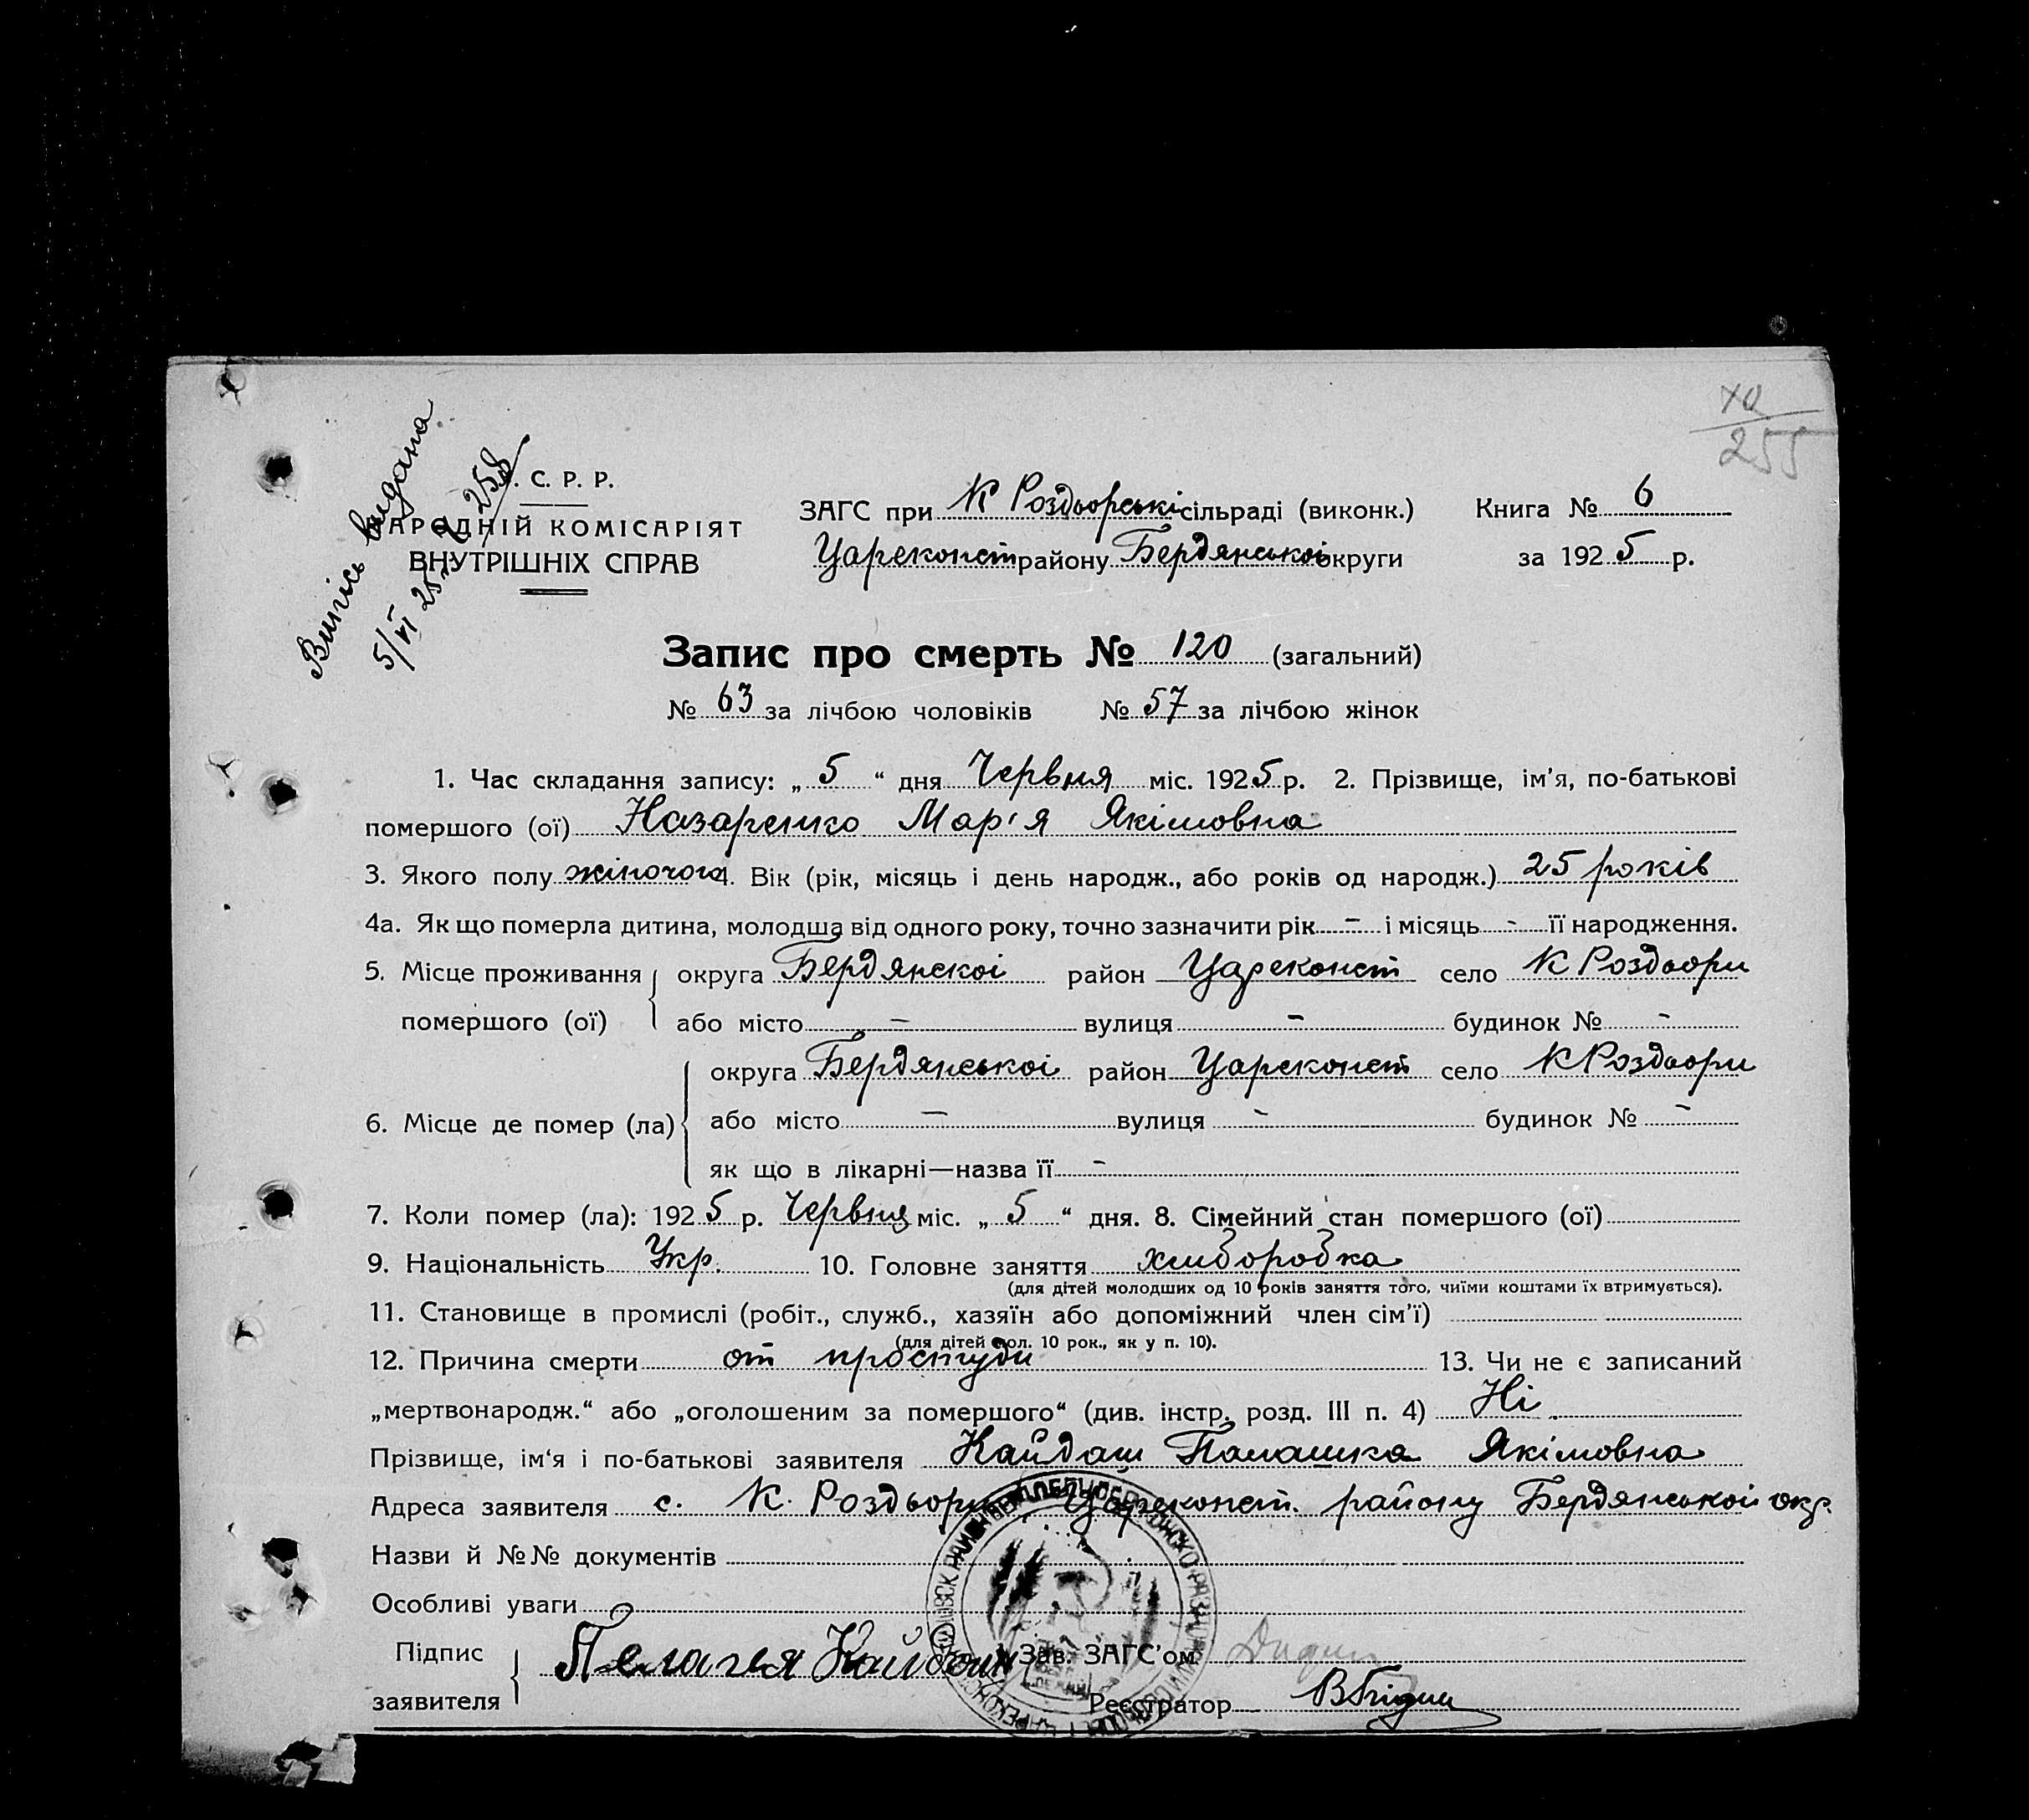 70
255
Випісь видана
5/VI 25 р. № 258
. С. Р. Р.
НАРОДНІЙ КОМІСАРІЯТ
ВНУТРІШНІХ СПРАВ
ЗАГС при К Роздьорські сільраді (виконк.) Книга № 6
Цареконст району Бердянськоі округи за 1925 р.
Запис про смерть № 120 (загальний)
№ 63 за лічбою чоловіків № 57 за лічбою жінок
1. Час складання запису: „5“ дня Червня міс. 1925 р. 2. Прізвище, ім'я, по-батькові
помершого (ої) Назаренко Мар'я Якімовна
3. Якого полу жіночого 4. Вік (рік, місяць і день народж., або років од народж.) 25 років
4а. Як що померла дитина, молодша від одного року, точно зазначити рік - і місяць - її народження.
5. Місце проживання округа Бердянскоі район Цареконст село К Роздьори
помершого (ої) або місто - вулиця - будинок № -
округа Бердянськоі район Цареконст село К Роздьори
6. Місце де помер (ла) або місто - вулиця - будинок № -
як що в лікарні—назва її -
7. Коли помер (ла): 1925 р. Червня міс. „5“ дня. 8. Сімейний стан помершого (ої)
9. Національність Укр. 10. Головне заняття хліборобка
(для дітей молодших од 10 років заняття того, чиїми коштами їх втримується).
11. Становище в промислі (робіт., служб., хазяїн або допоміжний член сім'ї)
(для дітей мол. 10 рок., як у п. 10).
12. Причина смерти от простуди 13. Чи не є записаний
„мертвонародж.“ або „оголошеним за помершого“ (див. інстр. розд. III п. 4) Ні
Прізвище, ім'я і по-батькові заявителя Кайдаш Палашка Якімовна
Адреса заявителя с. К. Роздьори Цареконст. району Бердянськоі окр.
Назви й №№ документів
Особливі уваги
Підпис
заявителя Пелагея Кайдаш Зав. ЗАГС'ом
Реєстратор